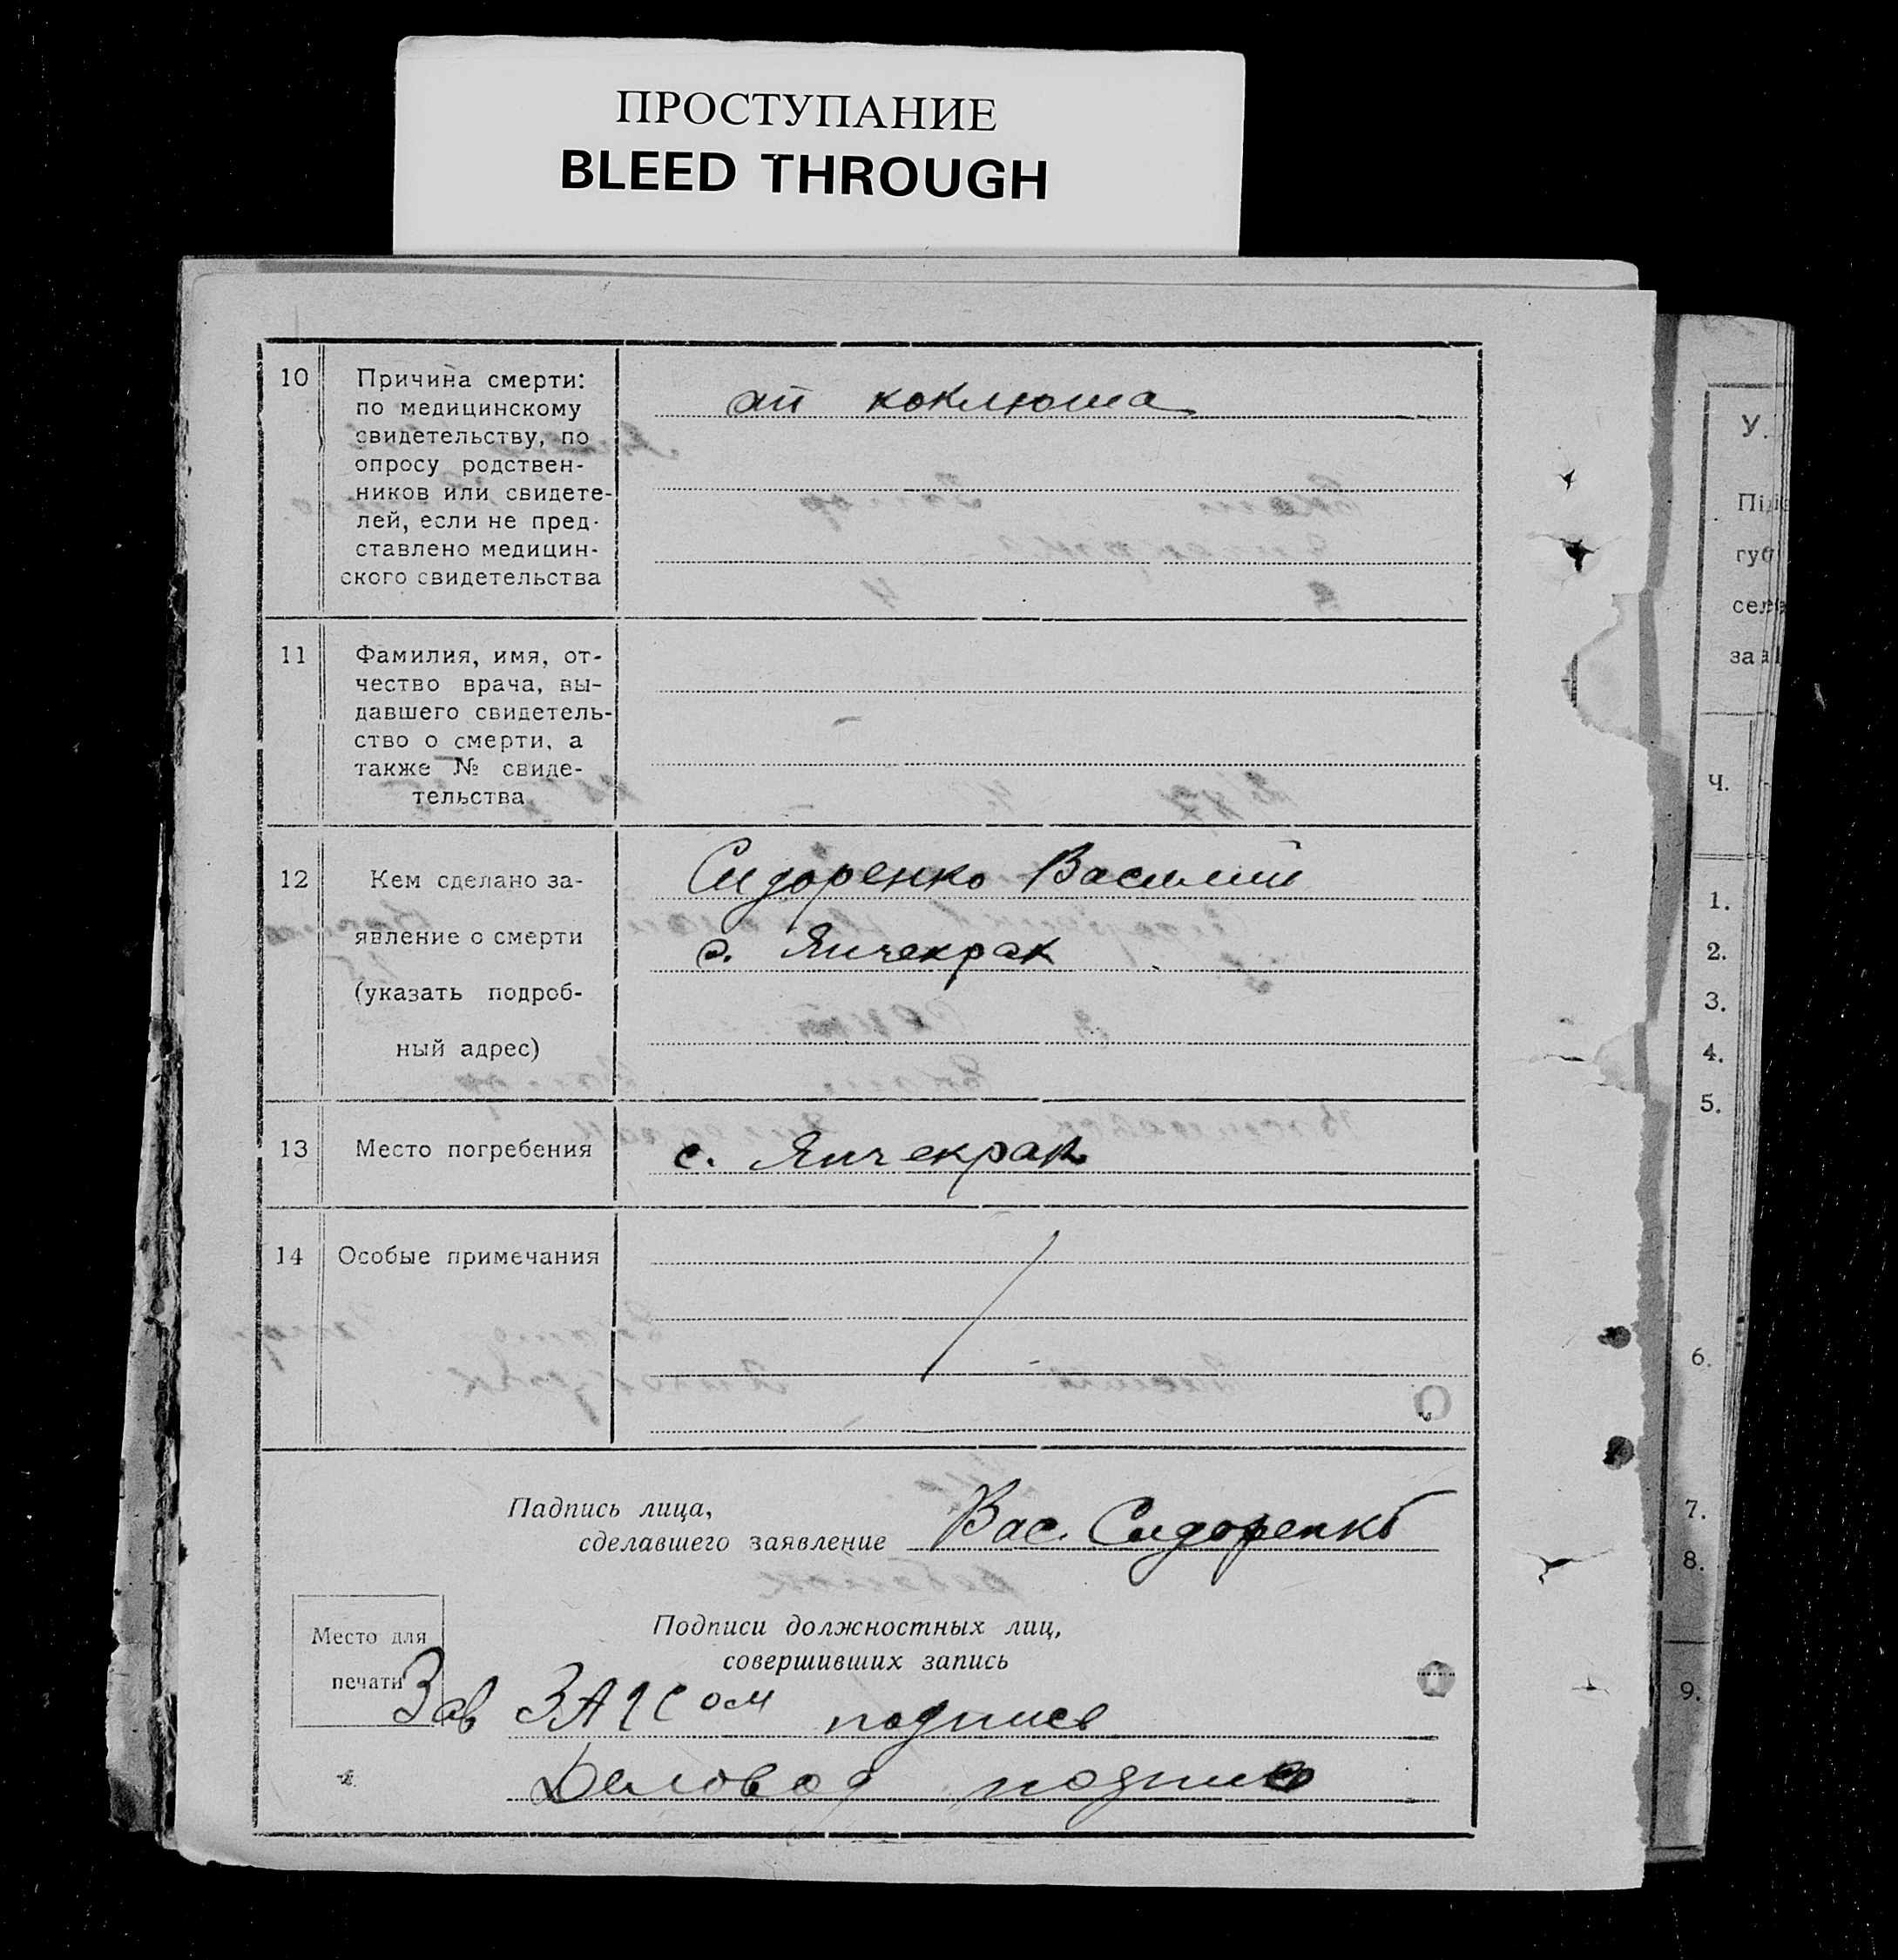 ПРОСТУПАНИЕ
BLEED THROUGH
10 Причина смерти:
по медицинскому
свидетельству, по
опросу родствен-
ников или свидете-
лей, если не пред-
ставлено медицин-
ского свидетельства
от коклюша
11 Фамилия, имя, от-
чество врача, вы-
давшего свидетель-
ство о смерти, а
также № свиде-
тельства
12 Кем сделано за-
явление о смерти
(указать подроб-
ный адрес)
Сидоренко Василий
с. Янчекрак
13 Место погребения с. Янчекрак
14 Особые примечания
Падпись лица,
сделавшего заявление Вас. Сидоренко
Место для
печати
Подписи должностных лиц,
совершивших запись
Зав ЗАГСом подпись
Деловод подпись
У.
Ч.
1.
2.
3.
4.
5.
6.
7.
8.
9.